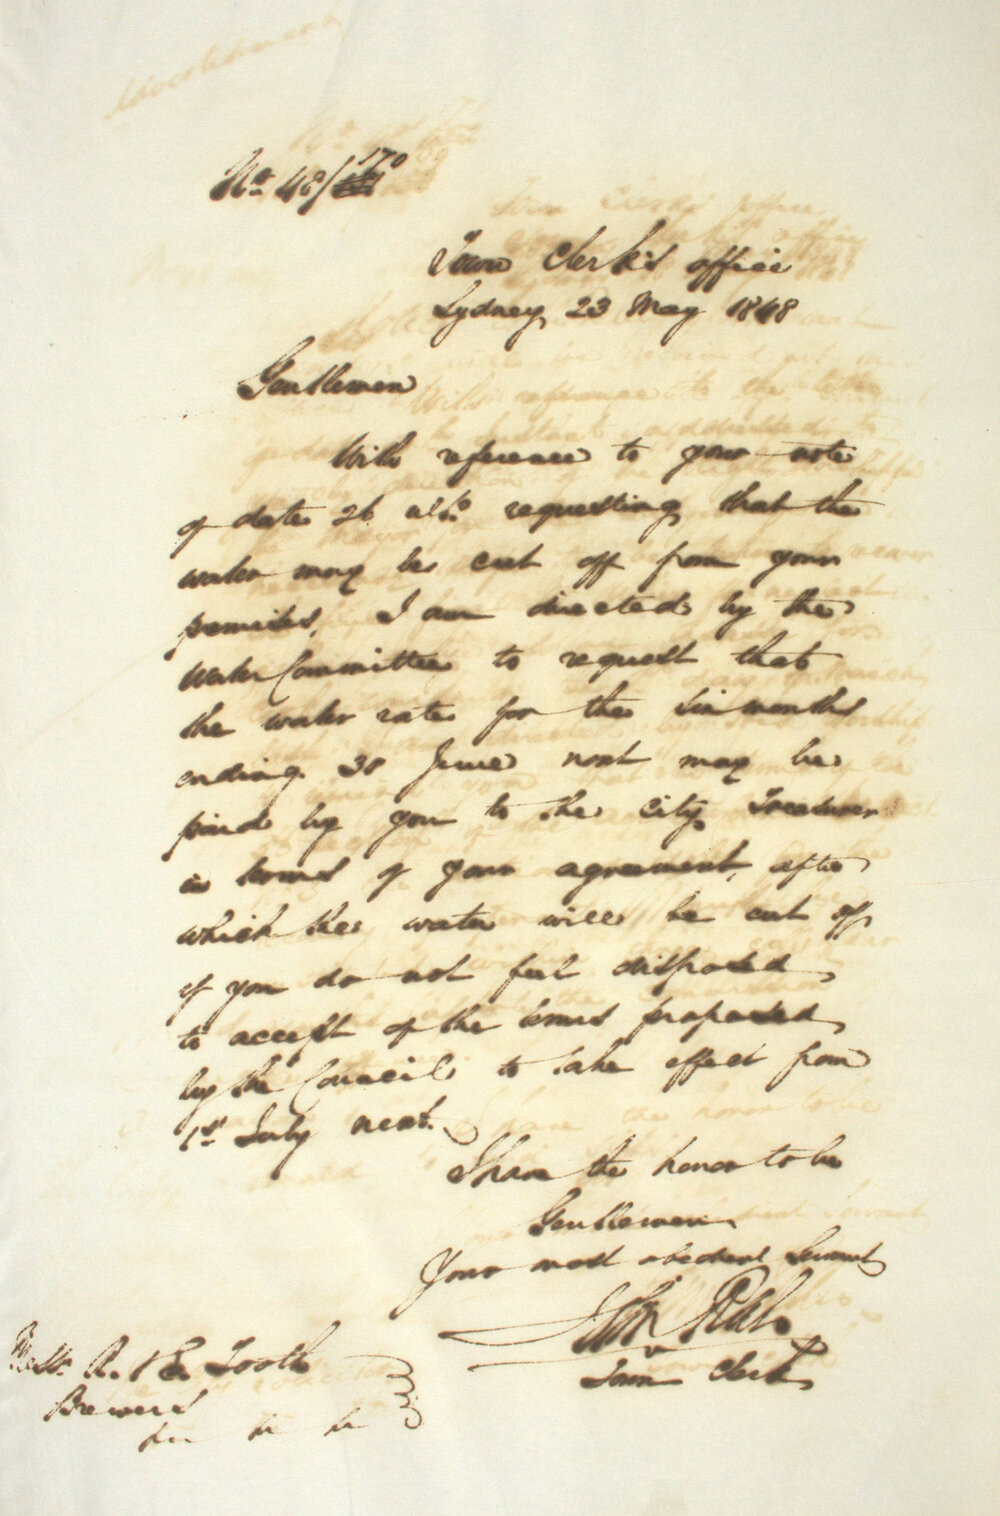 No. 48/170
Town Clerk's office
Sydney 23 May 1848
Gentlemen
With reference to your note
of date 26 ulto. requesting that the
water may be cut off from your
premises, I am directed by the
Water Committee to request that
the water rate for the six months
ending 30 June next may be
paid by you to the City Treasurer
in terms of your agreement, after
which the water will be cut off
if you do not feel disposed
to accept of the terms proposed
by the Council to take effect from
1st July next.
I have the honor to be
Gentlemen
Your most obedient Servant
John
Town Clerk
Messrs. R. & E. Tooth
Brewers